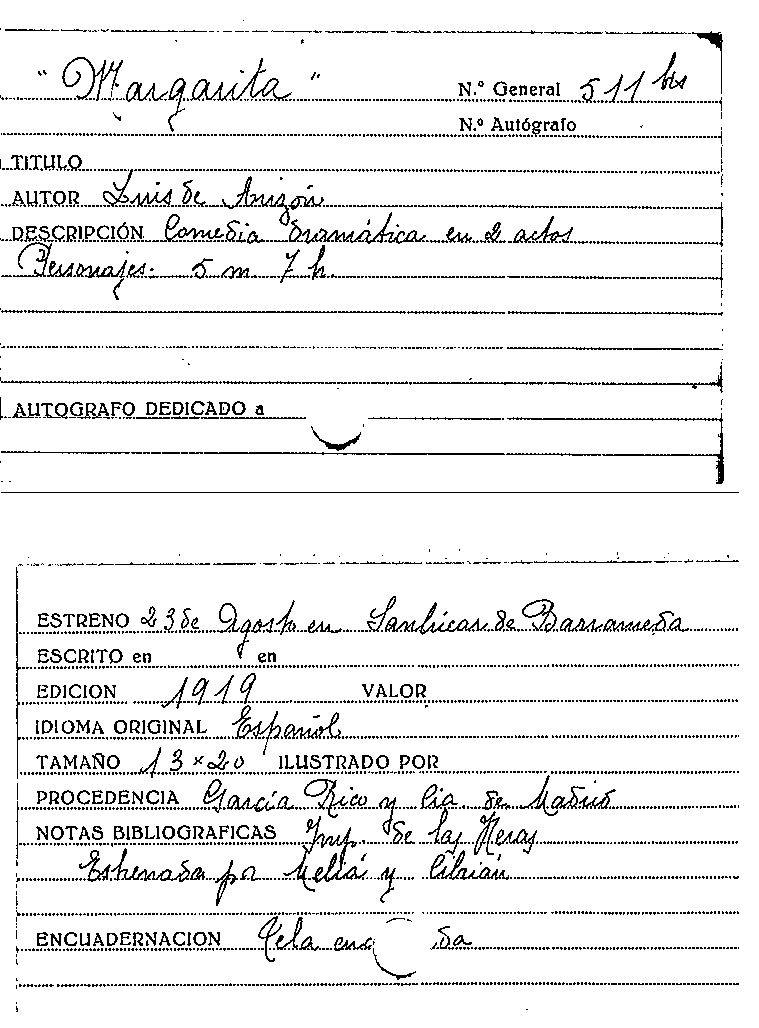 "Margarita"
N.º General 511 bis
N.º Autógrafo
TITULO
AUTOR Luis de Arizón
DESCRIPCIÓN Comedia dramática en 2 actos
Personajes. 5 m. 7 h.
AUTOGRAFO DEDICADO a
ESTRENO 23 de Agosto en Sanlúcar de Barrameda
ESCRITO en en
EDICION 1919 VALOR
IDIOMA ORIGINAL Español
TAMAÑO 13 × 20 ILUSTRADO POR
PROCEDENCIA García Rico y Cia. de Madrid
NOTAS BIBLIOGRAFICAS Imp. de las Heras
Estrenada por Meliá y Cibrián
ENCUADERNACION Tela